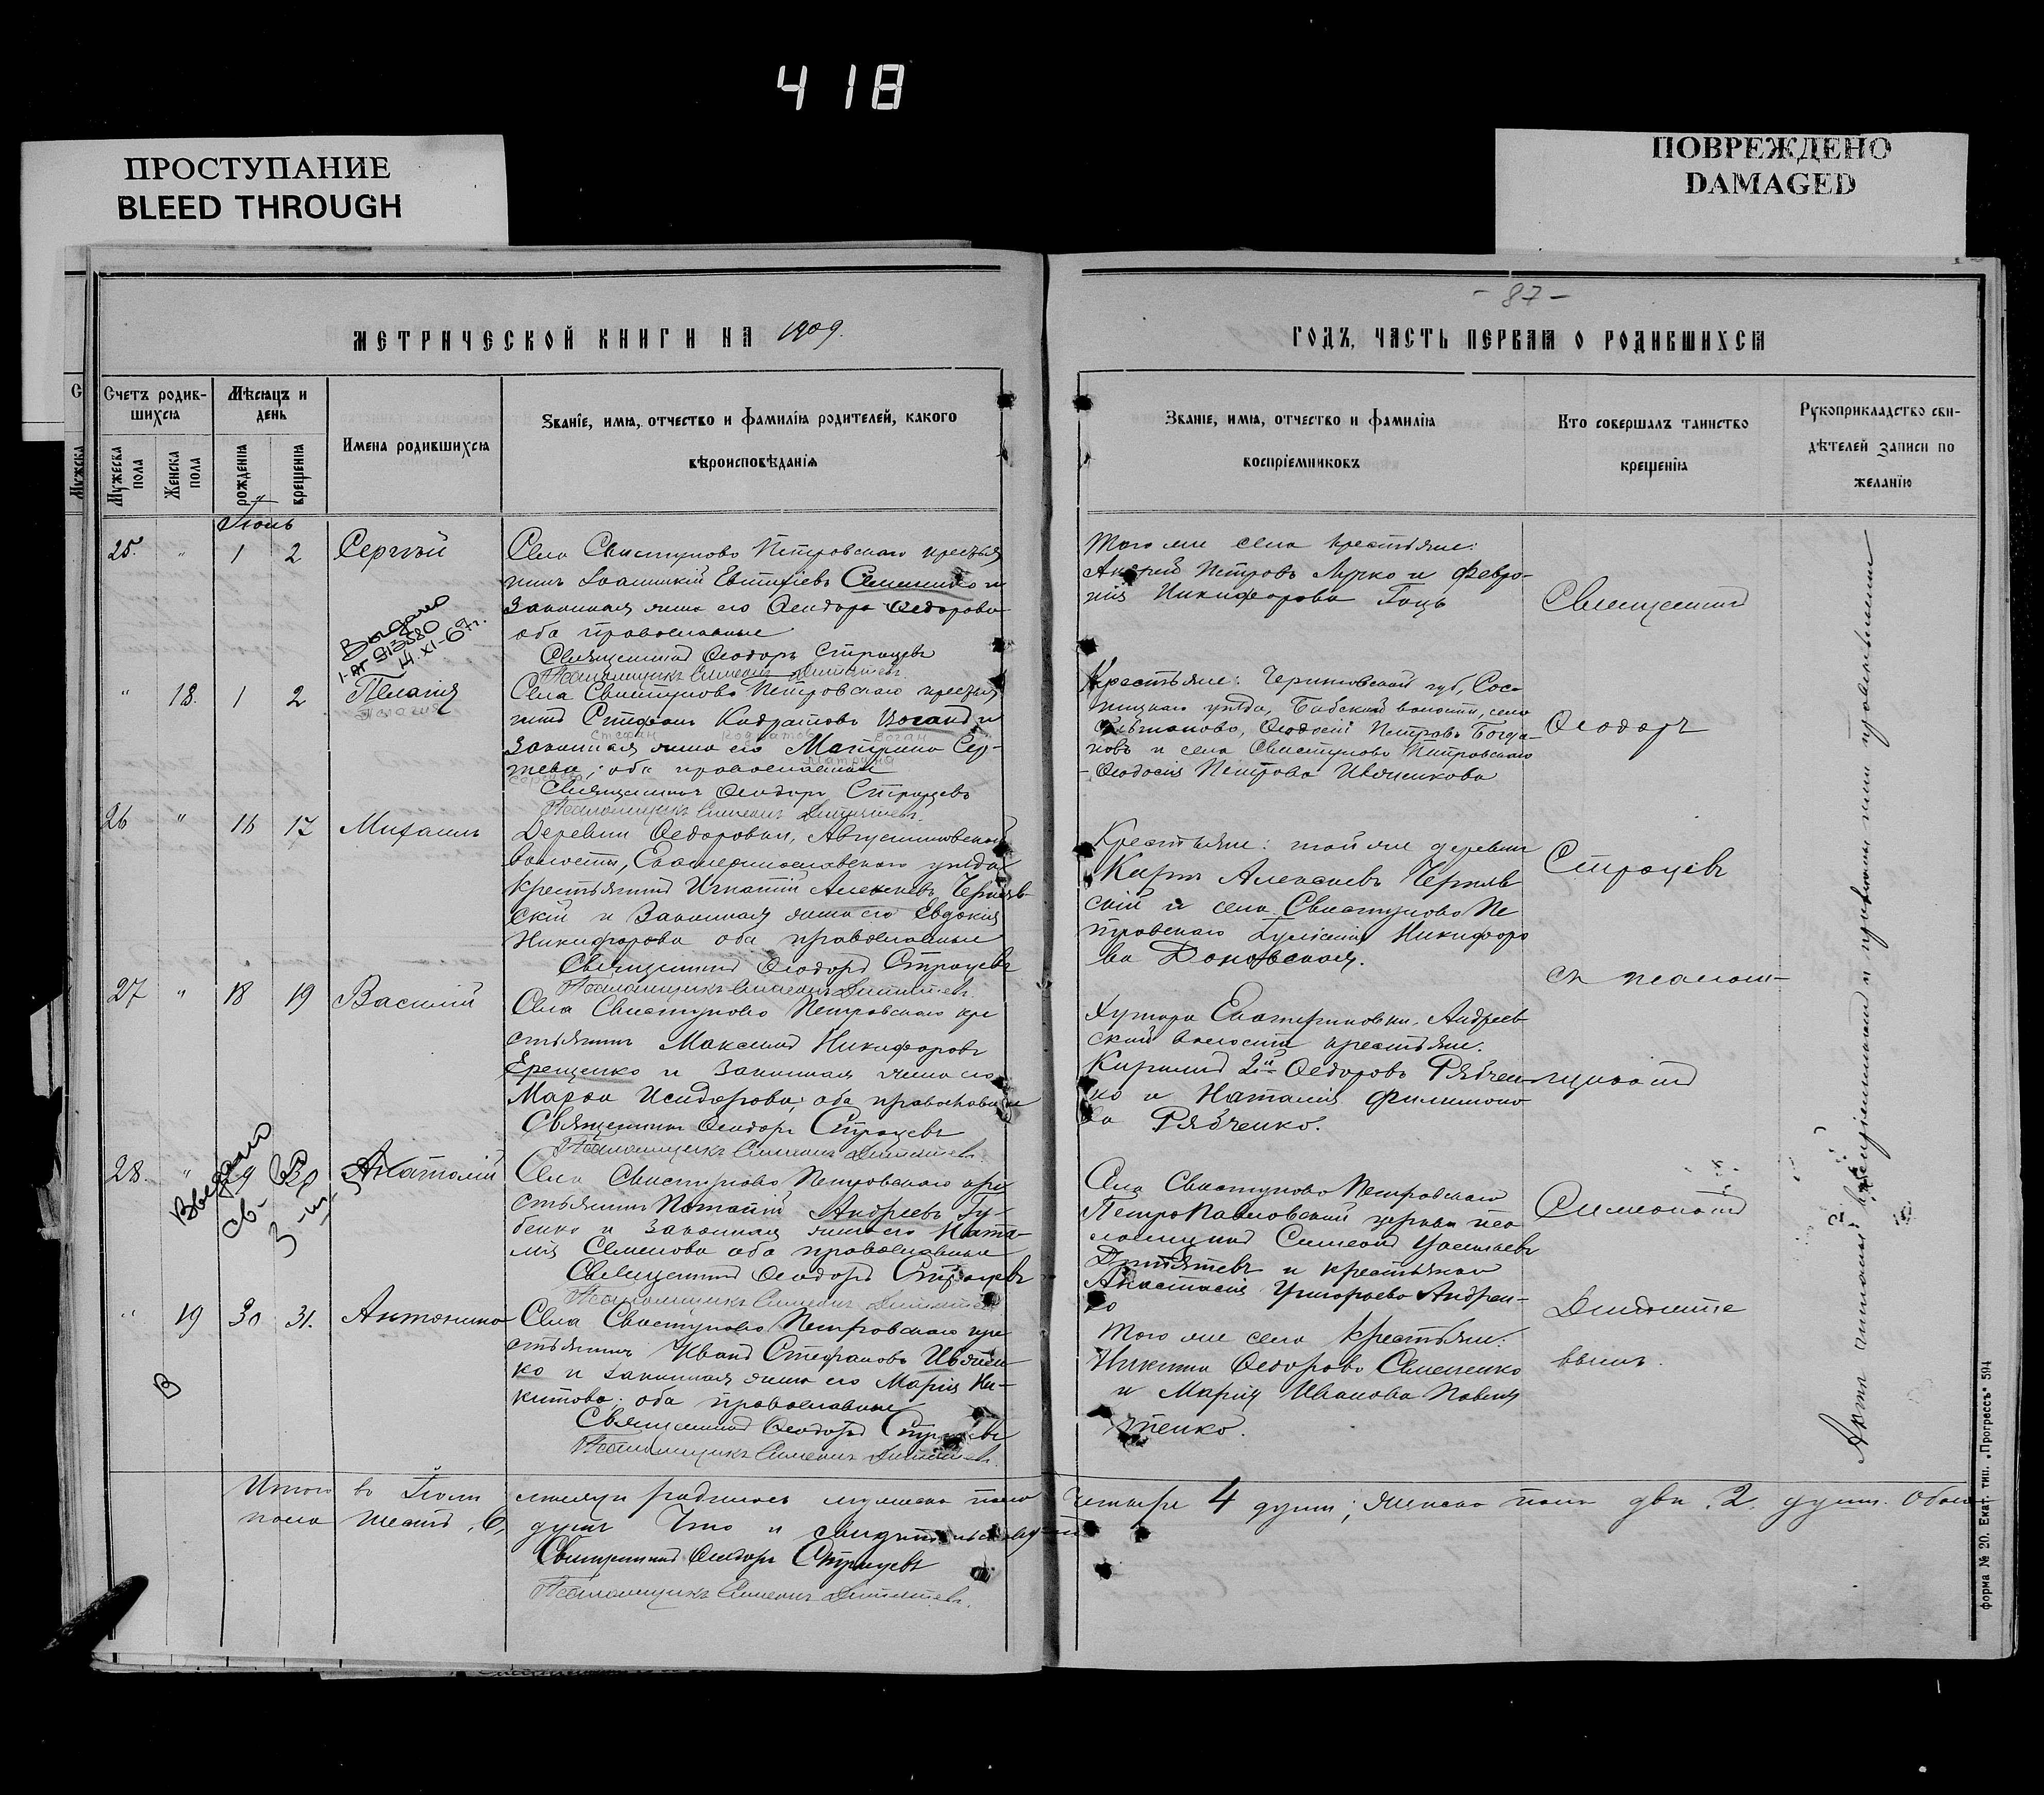 418
ПРОСТУПАНИЕ
BLEED THROUGH
ПОВРЕЖДЕНО
DAMAGED
- 87 -
МЕТРИЧЕСКОЙ КНИГИ НА 1909.
ГОДЪ, ЧАСТЬ ПЕРВАЯ О РОДИВШИХСЯ
Счетъ родив-
шихся
Мужеска
пола
Женска
пола
Мѣсяцъ и
день
рожденія
крещенія
Имена родившихся
Званіе, имя, отчество и фамилія родителей, какого
вѣроисповѣданія
Званіе, имя, отчество и фамилія
воспріемниковъ
Кто совершалъ таинство
крещенія
Рукоприкладство сви-
дѣтелей записи по
желанію
25. " 1 2 Сергѣй
Села Свистуново Петровскаго крестья
нинъ Іоанникій Евтихіевъ Семененко и
Законная жена его Ѳеодора Ѳедорова
оба православные
Священникъ Ѳеодоръ Строцевъ
Псаломщикъ Симеонъ
Того же села крестьяне:
Андрей Петровъ Лучко и Февро-
нія Никифорова Гоцъ
Выдано
14.XI-67г.
" 18. 1 2 Пелагія
Пелагия
Села Свистуново Петровскаго крестья
нинъ Стефанъ Кодратовъ Воганъ и
Стефан Кодратов Воган
Законная жена его Матрона Сер-
Матрона
гіева; оба православные
Сергиева
Священникъ Ѳеодоръ Строцевъ
Псаломщикъ Симеонъ
Крестьяне: Черниговской губ, Сос-
ницкаго уѣзда, Бабской волости, села
Ѳеодосій Петровъ Богда-
новъ и села Свистуново Петровскаго
- Ѳеодосія Петрова Ивченкова
26 " 16 17 Михаилъ
Деревни Ѳедоровки, Августиновской
волости, Екатеринославскаго уѣзда
крестьянинъ Игнатій Алексѣевъ Черняв
скій и Законная жена его Евдокія
Никифорова оба православные
Священникъ Ѳеодоръ Строцевъ
Псаломщикъ Симеонъ
Крестьяне: той же деревни
Карпъ Алексѣевъ Черняв
скій и села Свистуново Пе
тровскаго Никифоро
ва
27 " 18 19 Василій
Села Свистуново Петровскаго кре
стьянинъ Максимъ Никифоровъ
Ерещенко и Законная жена его
Марѳа Исидорова; оба православные
Священникъ Ѳеодоръ Строцевъ
Псаломщикъ Симеонъ
Хутора Екатериновки, Андреев
ской волости крестьяне:
Кириллъ 2й Ѳедоровъ Рябчен
ко и Наталія Филимоно
ва Рябченко.
28. " 29 30 Анатолій
Села Свистуново Петровскаго кре
стьянинъ Андреевъ Гу-
бенко и Законная жена его Ната-
лія Семенова оба православные
Священникъ Ѳеодоръ Строцевъ
Псаломщикъ Симеонъ
Села Свистуново Петровскаго
ПетроПавловской церкви пса
ломщикъ Симеонъ
и крестьянка
Анастасія Григорьева Андреен-
ко
" 19 30 31. Антонина
Села Свистуново Петровскаго кре
стьянинъ Иванъ Стефановъ Ивчен
ко и Законная жена его Марія Ни-
китова; оба православные
Священникъ Ѳеодоръ Строцевъ
Псаломщикъ Симеонъ
Того же села Крестьяне:
Никита Ѳедоровъ Семененко
и Марія Иванова
Священникъ
Ѳеодоръ
Строцевъ
съ псалом-
щикомъ
Симеономъ
В
Итого въ мѣсяцѣ родилось мужеска пола четыре 4 души; женска пола двѣ, 2. души. Обоего
пола шесть, 6, душъ Что и свидѣтельствуютъ
Священникъ Ѳеодоръ Строцевъ
Псаломщикъ Симеонъ
форма № 20. Екат. тип. „Прогрессъ" 594